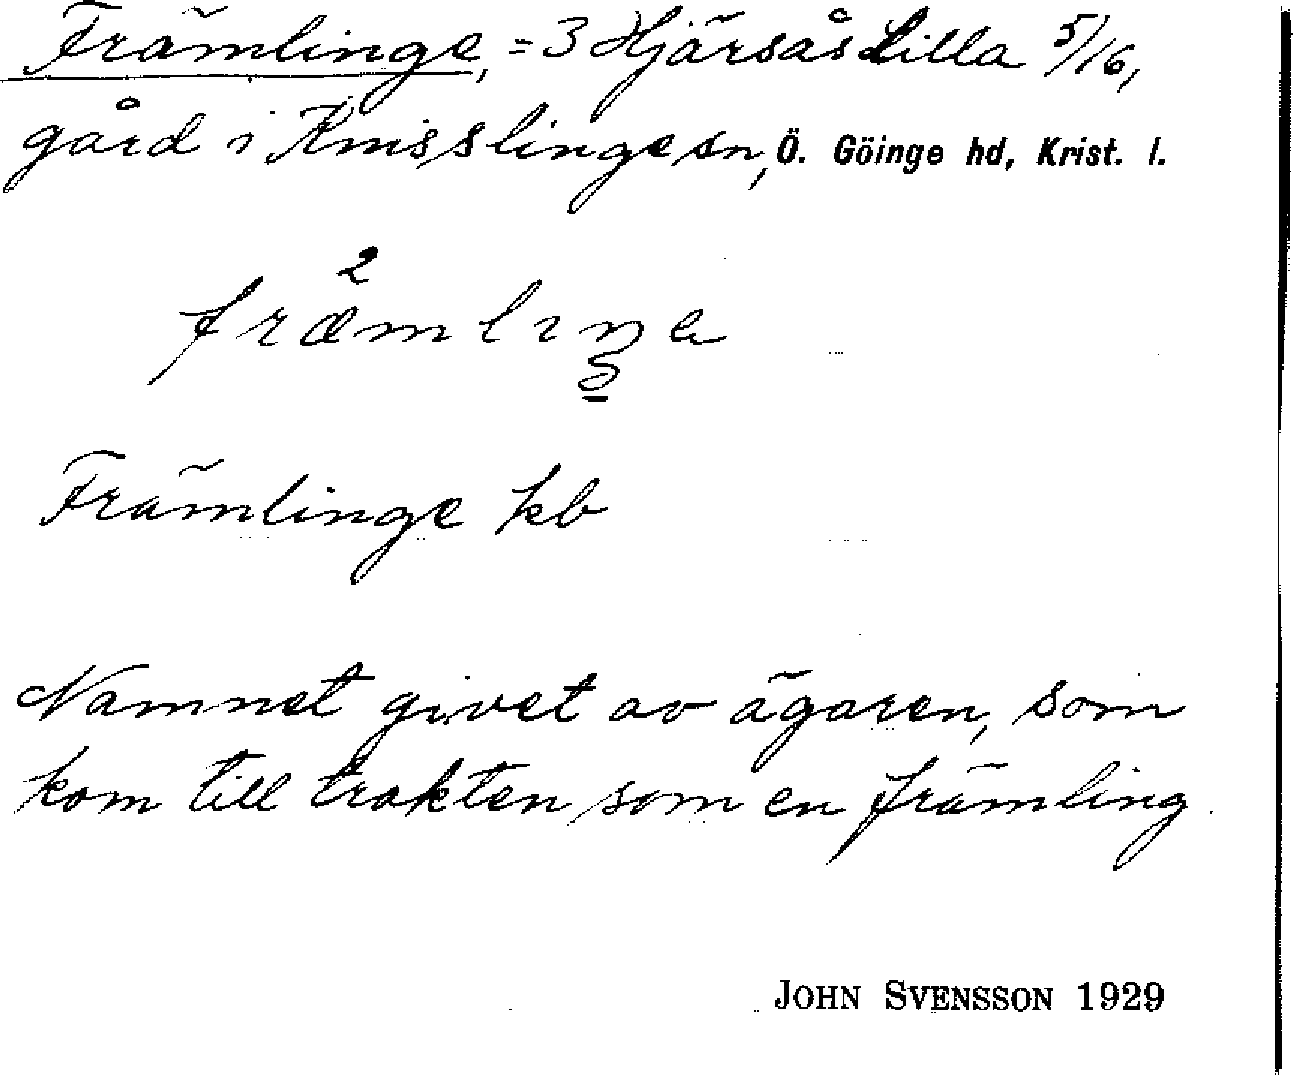 Främlinge, = 3 Hjärsås Lilla 5/16,
gård i Knisslinge sn, Ö. Göinge hd, Krist. l.
2
främlıŋe
Främlinge kb
Namnet givet av ägaren, som
kom till trakten som en främling.
JOHN SVENSSON 1929